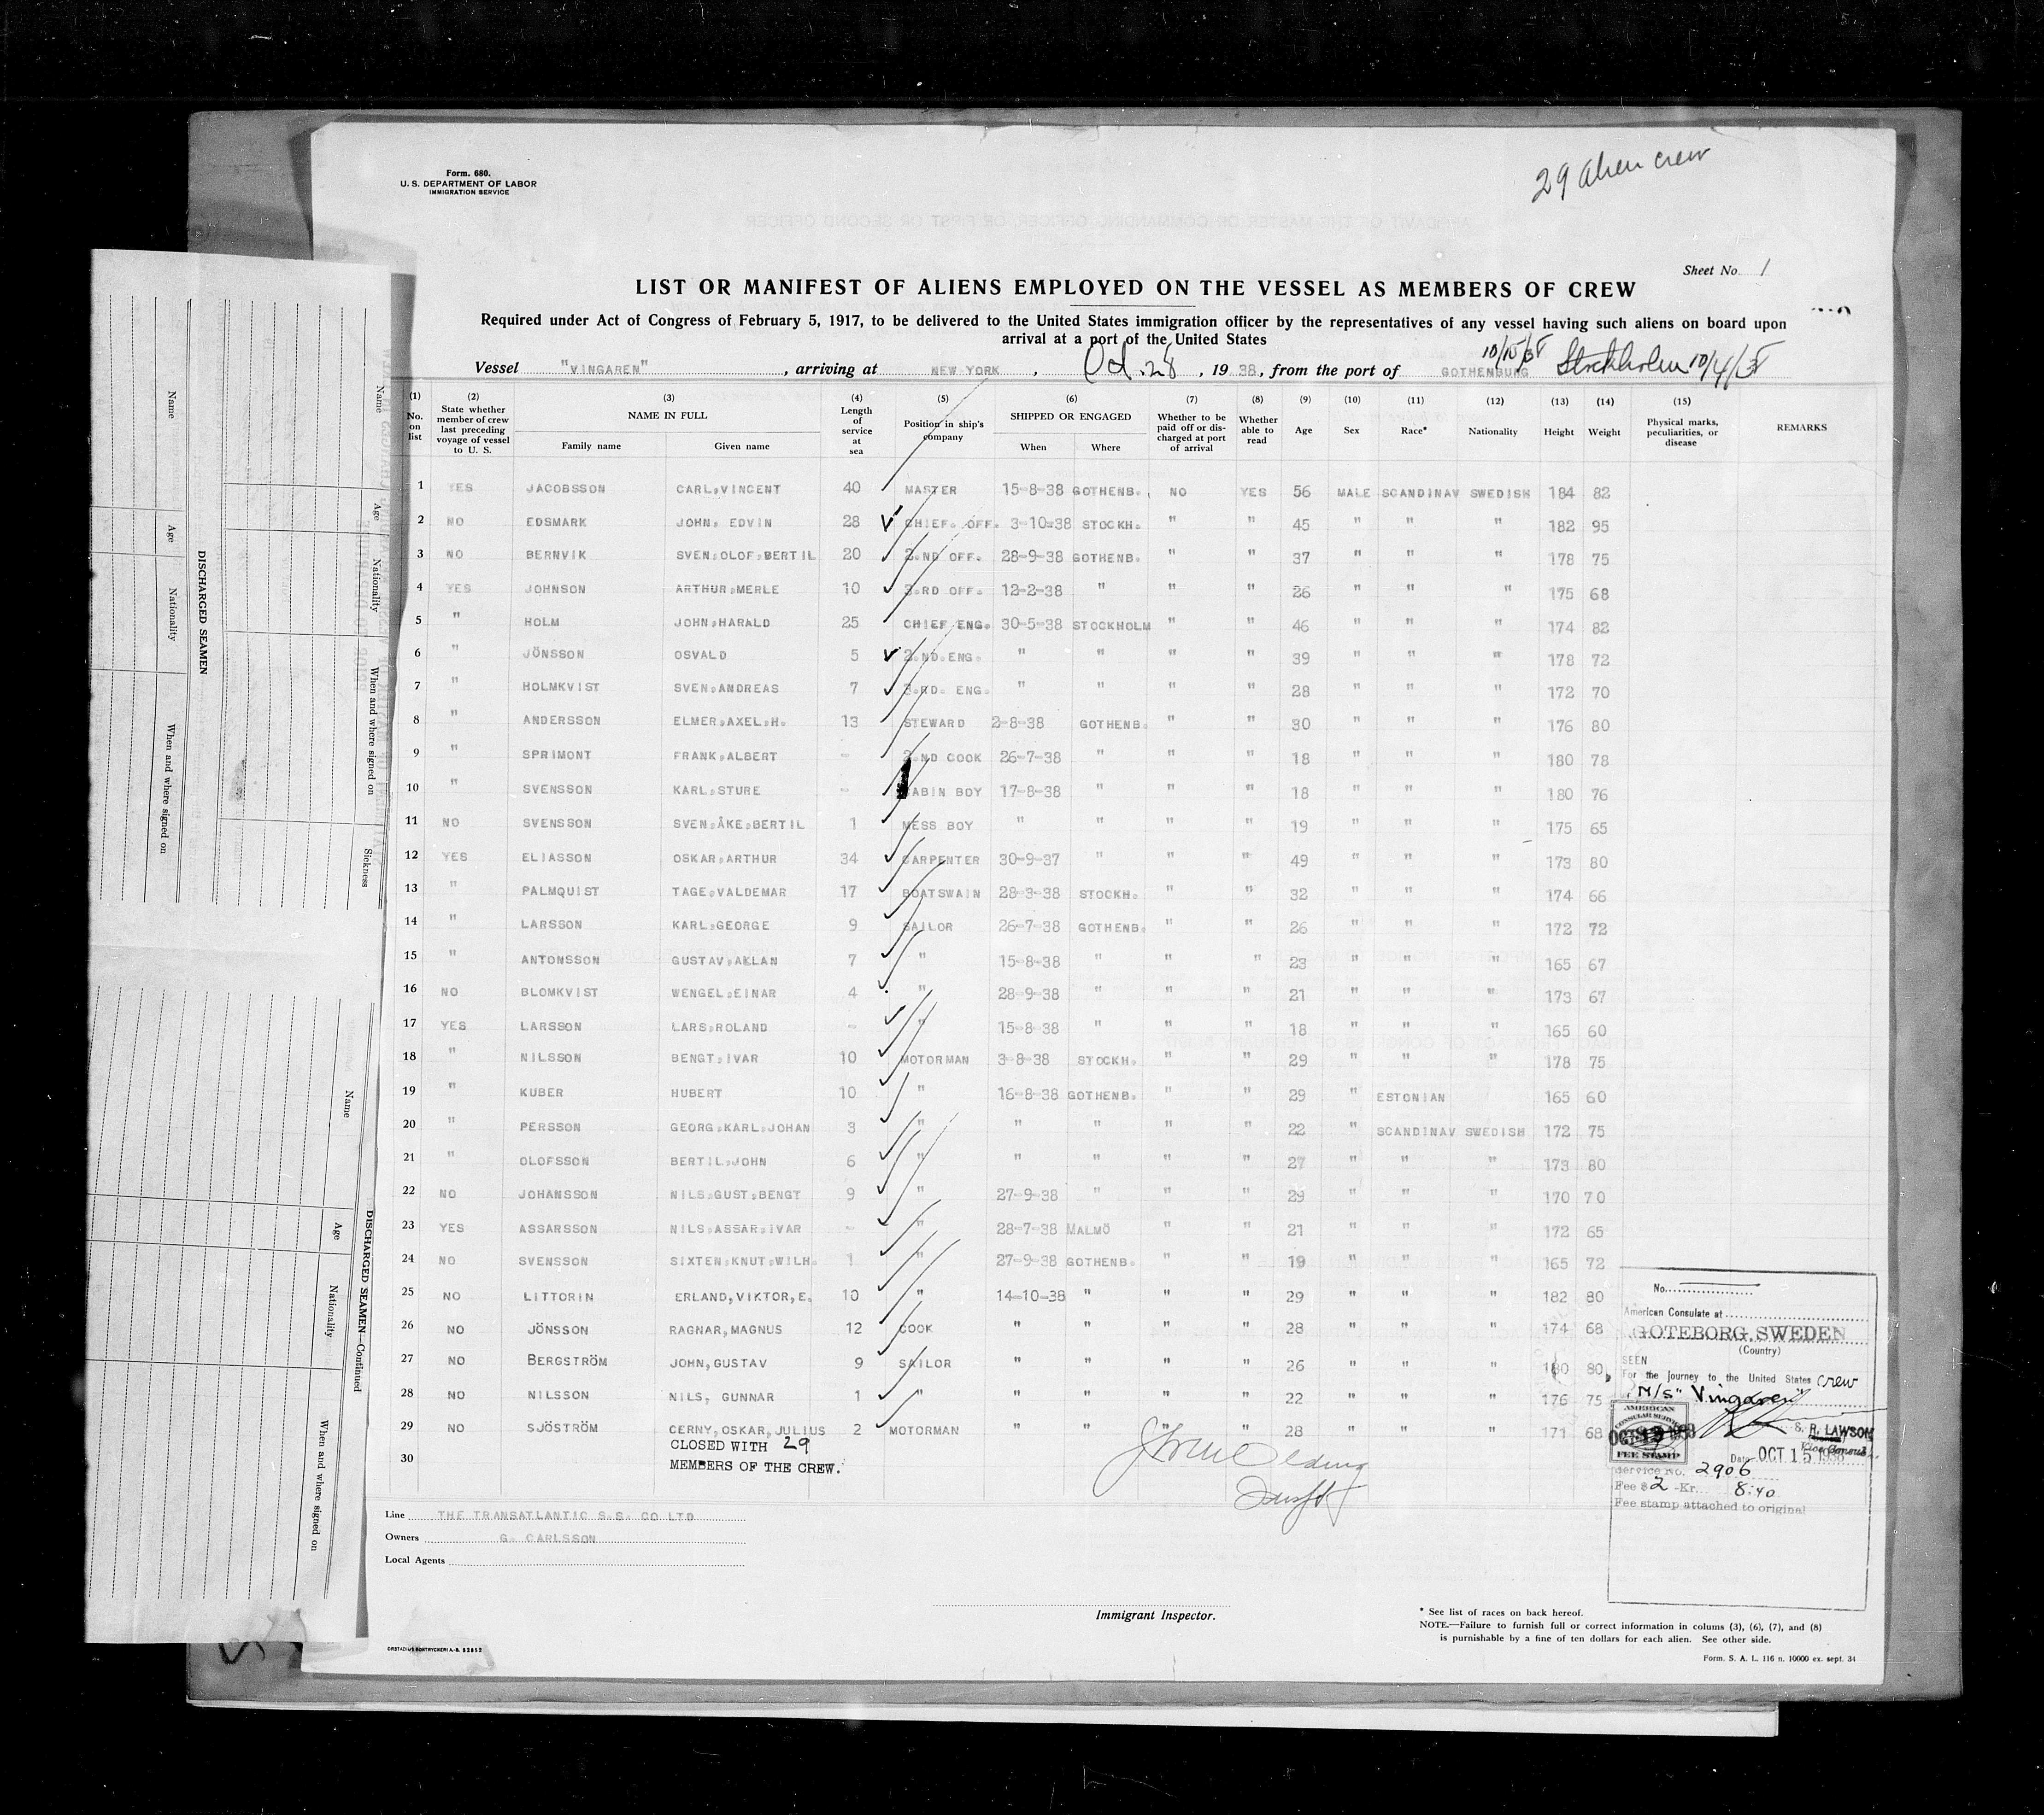 29 alien crew
Form. 680.
U. S. DEPARTMENT OF LABOR
IMMIGRATION SERVICE
Sheet No. 1
LIST OR MANIFEST OF ALIENS EMPLOYED ON THE VESSEL AS MEMBERS OF CREW
Required under Act of Congress of February 5, 1917, to be delivered to the United States immigration officer by the representatives of any vessel having such aliens on board upon
arrival at a port of the United States
Vessel "VINGAREN", arriving at NEW YORK, Oct. 28, 1938, from the port of GOTHENBURG 10/15/38 Stockholm 10/4/38
(1) No. on list
(2) State whether member of crew last preceding voyage of vessel to U. S.
(3) NAME IN FULL Family name Given name
(4) Length of service at sea
(5) Position in ship's company
(6) SHIPPED OR ENGAGED When Where
(7) Whether to be paid off or discharged at port of arrival
(8) Whether able to read
(9) Age
(10) Sex
(11) Race*
(12) Nationality
(13) Height
(14) Weight
(15) Physical marks, peculiarities, or disease
REMARKS
1 YES JACOBSSON CARL,VINCENT 40 MASTER 15-8-38 GOTHENB. NO YES 56 MALE SCANDINAV SWEDISH 184 82
2 NO EDSMARK JOHN, EDVIN 28 CHIEF. OFF. 3-10-38 STOCKH. " " 45 " " " 182 95
3 NO BERNVIK SVEN,OLOF,BERTIL 20 2.ND OFF. 28-9-38 GOTHENB. " " 37 " " " 178 75
4 YES JOHNSON ARTHUR,MERLE 10 3.RD OFF. 12-2-38 " " " 26 " " " 175 68
5 " HOLM JOHN,HARALD 25 CHIEF ENG. 30-5-38 STOCKHOLM " " 46 " " " 174 82
6 " JÖNSSON OSVALD 5 2.ND.ENG. " " " " 39 " " " 178 72
7 " HOLMKVIST SVEN,ANDREAS 7 3.RD. ENG. " " " " 28 " " " 172 70
8 " ANDERSSON ELMER,AXEL,H. 13 STEWARD 2-8-38 GOTHENB. " " 30 " " " 176 80
9 " SPRIMONT FRANK,ALBERT - 2.ND COOK 26-7-38 " " " 18 " " " 180 78
10 " SVENSSON KARL,STURE - CABIN BOY 17-8-38 " " " 18 " " " 180 76
11 NO SVENSSON SVEN,ÅKE,BERTIL 1 MESS BOY " " " " 19 " " " 175 65
12 YES ELIASSON OSKAR,ARTHUR 34 CARPENTER 30-9-37 " " " 49 " " " 173 80
13 " PALMQUIST TAGE,VALDEMAR 17 BOATSWAIN 28-3-38 STOCKH. " " 32 " " " 174 66
14 " LARSSON KARL,GEORGE 9 SAILOR 26-7-38 GOTHENB. " " 26 " " " 172 72
15 " ANTONSSON GUSTAV,ALLAN 7 " 15-8-38 " " " 23 " " " 165 67
16 NO BLOMKVIST WENGEL,EINAR 4 " 28-9-38 " " " 21 " " " 173 67
17 YES LARSSON LARS,ROLAND - " 15-8-38 " " " 18 " " " 165 60
18 " NILSSON BENGT,IVAR 10 MOTORMAN 3-8-38 STOCKH. " " 29 " " " 178 75
19 " KUBER HUBERT 10 " 16-8-38 GOTHENB. " " 29 " ESTONIAN 165 60
20 " PERSSON GEORG,KARL,JOHAN 3 " " " " " 22 " SCANDINAV SWEDISH 172 75
21 " OLOFSSON BERTIL,JOHN 6 " " " " " 27 " " " 173 80
22 NO JOHANSSON NILS,GUST,BENGT 9 " 27-9-38 " " " 29 " " " 170 70
23 YES ASSARSSON NILS,ASSAR,IVAR - " 28-7-38 MALMÖ " " 21 " " " 172 65
24 NO SVENSSON SIXTEN,KNUT,WILH. 1 " 27-9-38 GOTHENB. " " 19 " " " 165 72
25 NO LITTORIN ERLAND,VIKTOR,E. 10 " 14-10-38 " " " 29 " " " 182 80
26 NO JÖNSSON RAGNAR,MAGNUS 12 COOK " " " " 28 " " " 174 68
27 NO BERGSTRÖM JOHN,GUSTAV 9 SAILOR " " " " 26 " " " 180 80
28 NO NILSSON NILS, GUNNAR 1 " " " " " 22 " " " 176 75
29 NO SJÖSTRÖM CERNY,OSKAR,JULIUS 2 MOTORMAN " " " " 28 " " " 171 68
CLOSED WITH 29
30 MEMBERS OF THE CREW.
Line THE TRANSATLANTIC S.S. CO LTD
Owners G. CARLSSON
Local Agents
Immigrant Inspector.
No.
American Consulate at
GOTEBORG, SWEDEN
(Country)
SEEN
For the journey to the United States crew
M/S "Vingaren"
AMERICAN
CONSULAR SERVICE
FEE STAMP
S. R. LAWSON
Vice Consul
Date OCT 15 1938
Service No. 2906
Fee $2 -Kr. 8:40
Fee stamp attached to original
* See list of races on back hereof.
NOTE.—Failure to furnish full or correct information in colums (3), (6), (7), and (8)
is punishable by a fine of ten dollars for each alien. See other side.
Form. S. A. L. 116 n. 10000 ex. sept. 34
DISCHARGED SEAMEN
Name
Age
Nationality
When and where signed on
Name
Age
Nationality
When and where signed on
Sickness
DISCHARGED SEAMEN—Continued
Name
Age
Nationality
When and where signed on